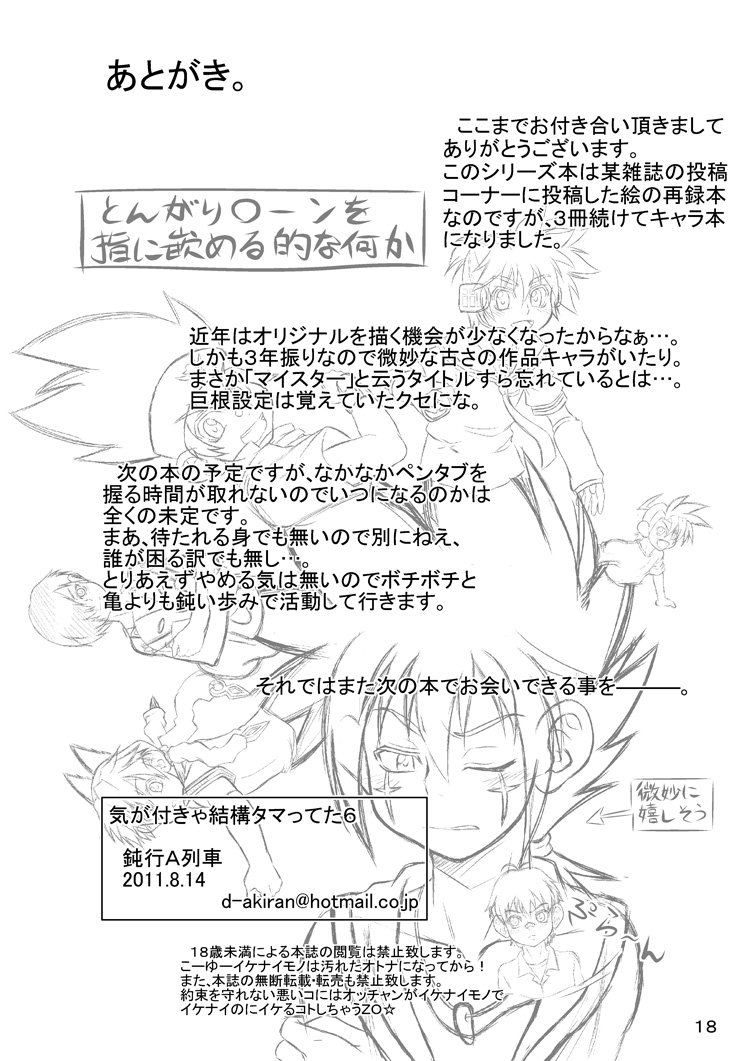 あとがき。
ここまでお付き合い頂きまして
ありがとうございます。
このシリーズ本は某雑誌の投稿
コーナーに投稿した絵の再録本
なのですが、3冊続けてキャラ本
になりました。
とんがり〇ーンを
指に嵌める的な何か
近年はオリジナルを描く機会が少なくなったからなぁ…。
しかも3年振りなので微妙な古さの作品キャラがいたり。
まさか「マイスター」と云うタイトルすら忘れているとは…。
巨根設定は覚えていたクセにな。
次の本の予定ですが、なかなかペンタブを
握る時間が取れないのでいつになるのかは
全くの未定です。
まあ、待たれる身でも無いので別にねえ、
誰が困る訳でも無し…。
とりあえずやめる気は無いのでボチボチと
亀よりも鈍い歩みで活動して行きます。
それではまた次の本でお会いできる事を―――。
微妙に
嬉しそう
気が付きゃ結構タマってた6
鈍行A列車
2011.8.14
d-akiran@hotmail.co.jp
ぷぅ～ん
18歳未満による本誌の閲覧は禁止致します。
こーゆーイケナイモノは汚れたオトナになってから!
また、本誌の無断転載・転売も禁止致します。
約束を守れない悪いコにはオッチャンがイケナイモノで
イケナイのにイケるコトしちゃうZO☆
18